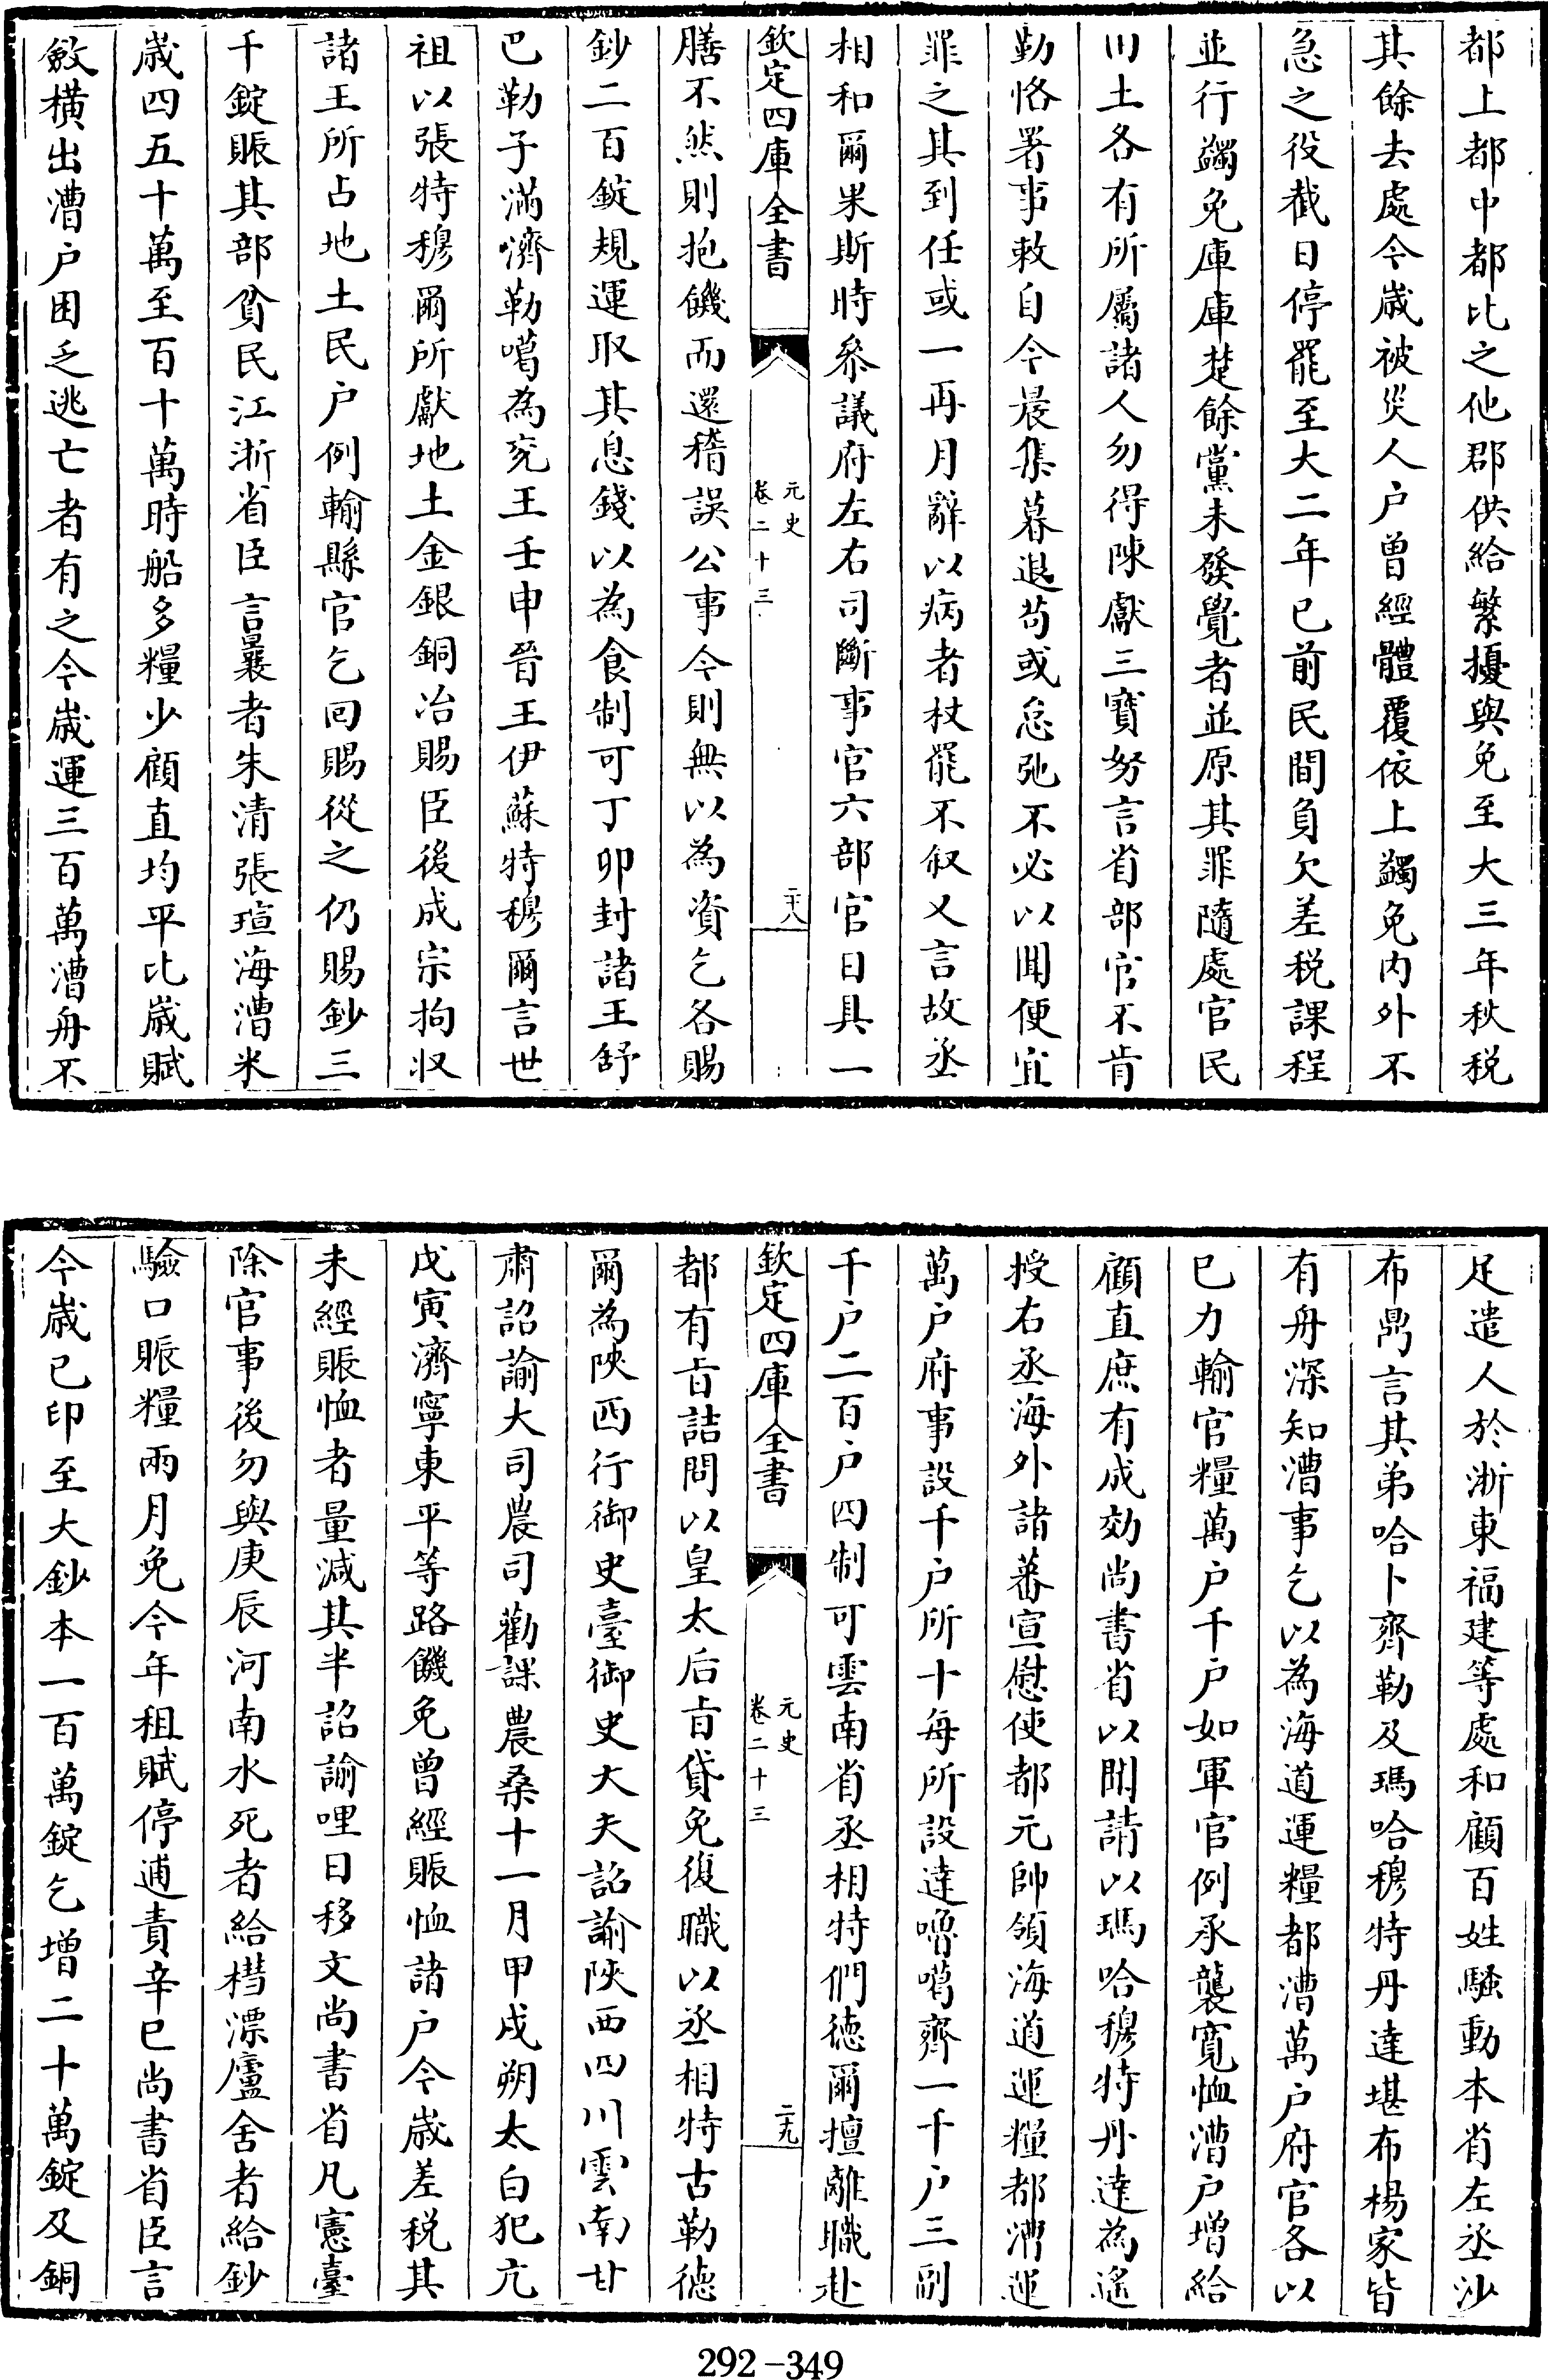 都上都中都比之他郡供給繁擾與免至大三年秋税
其餘去處今嵗被災人户曾經體覆依上蠲免内外不
急之役截日停罷至大二年已前民間負欠差税課程
並行蠲免庫庫楚餘黨未發覺者並原其罪隨處官民
川土各有所屬諸人勿得陳獻三寶努言省部官不肯
勤恪署事敕自今晨集暮退苟或怠弛不必以聞便宜
罪之其到任或一再月辭以病者杖罷不叙又言故丞
相和爾果斯時叅議府左右司斷事官六部官日具一
欽定四庫全書
元史
卷二十三
二十八
膳不然則抱饑而還稽誤公事今則無以為資乞各賜
鈔二百錠規運取其息錢以為食制可丁卯封諸王舒
巴勒子滿濟勒噶為兖王壬申晉王伊蘇特穆爾言世
祖以張特穆爾所獻地土金銀銅冶賜臣後成宗拘收
諸王所占地土民户例輸縣官乞回賜從之仍賜鈔三
千錠賑其部貧民江浙省臣言曩者朱清張瑄海漕米
嵗四五十萬至百十萬時船多糧少顧直均平比嵗賦
斂横出漕户困乏逃亡者有之今嵗運三百萬漕舟不
足遣人於浙東福建等處和顧百姓騷動本省左丞沙
布鼎言其弟哈卜齊勒及瑪哈穆特丹達堪布楊家皆
有舟深知漕事乞以為海道運糧都漕萬户府官各以
已力輸官糧萬户千户如軍官例承襲寛恤漕户增給
顧直庶有成効尚書省以聞請以瑪哈穆特丹達為遙
授右丞海外諸蕃宣慰使都元帥領海道運糧都漕運
萬户府事設千户所十每所設達嚕噶齊一千户三副
千户二百户四制可雲南省丞相特們徳爾擅離職赴
欽定四庫全書
元史
卷二十三
二十九
都有㫖詰問以皇太后㫖貸免復職以丞相特古勒德
爾為陜西行御史臺御史大夫詔諭陜西四川雲南甘
肅詔諭大司農司勸課農桑十一月甲戌朔太白犯亢
戊寅濟寧東平等路饑免曾經賑恤諸户今嵗差税其
未經賑恤者量減其半詔諭哩日移文尚書省凡憲臺
除官事後勿與庚辰河南水死者給槥漂廬舍者給鈔
驗口賑糧兩月免今年租賦停逋責辛巳尚書省臣言
今嵗已印至大鈔本一百萬錠乞增二十萬錠及銅
292-349